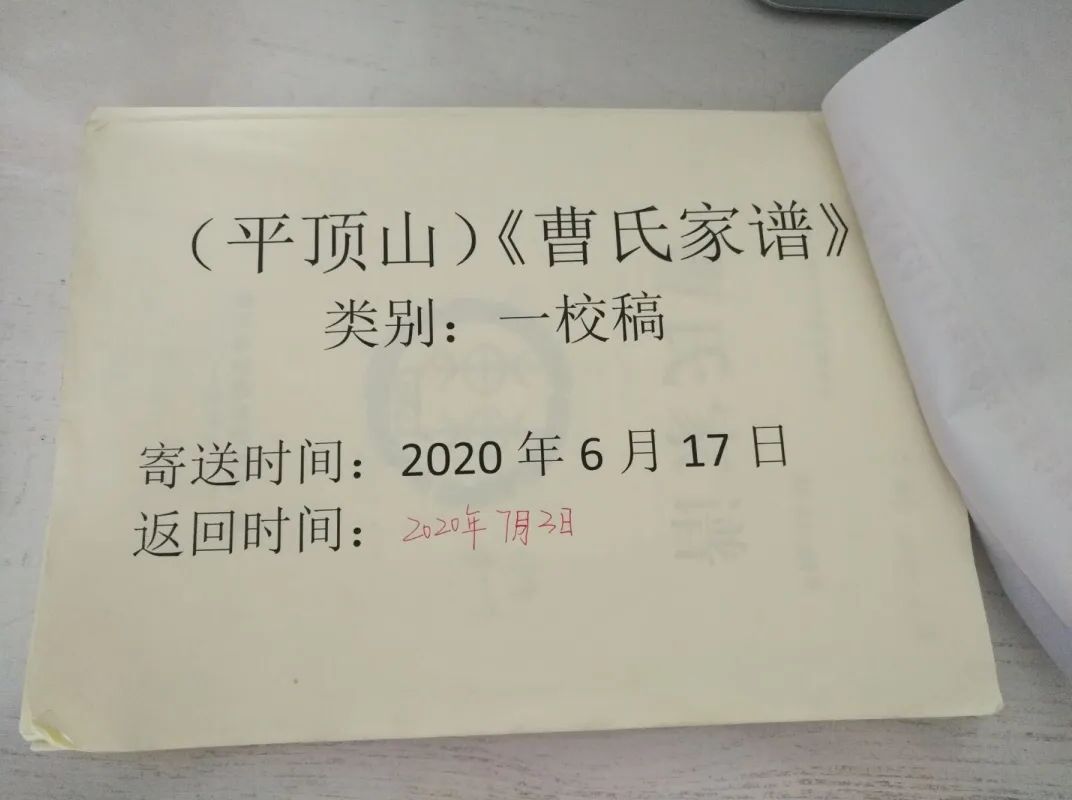 （平顶山）《曹氏家谱》
类别：一校稿
寄送时间：2020 年 6 月 17 日
返回时间：2020年7月3日